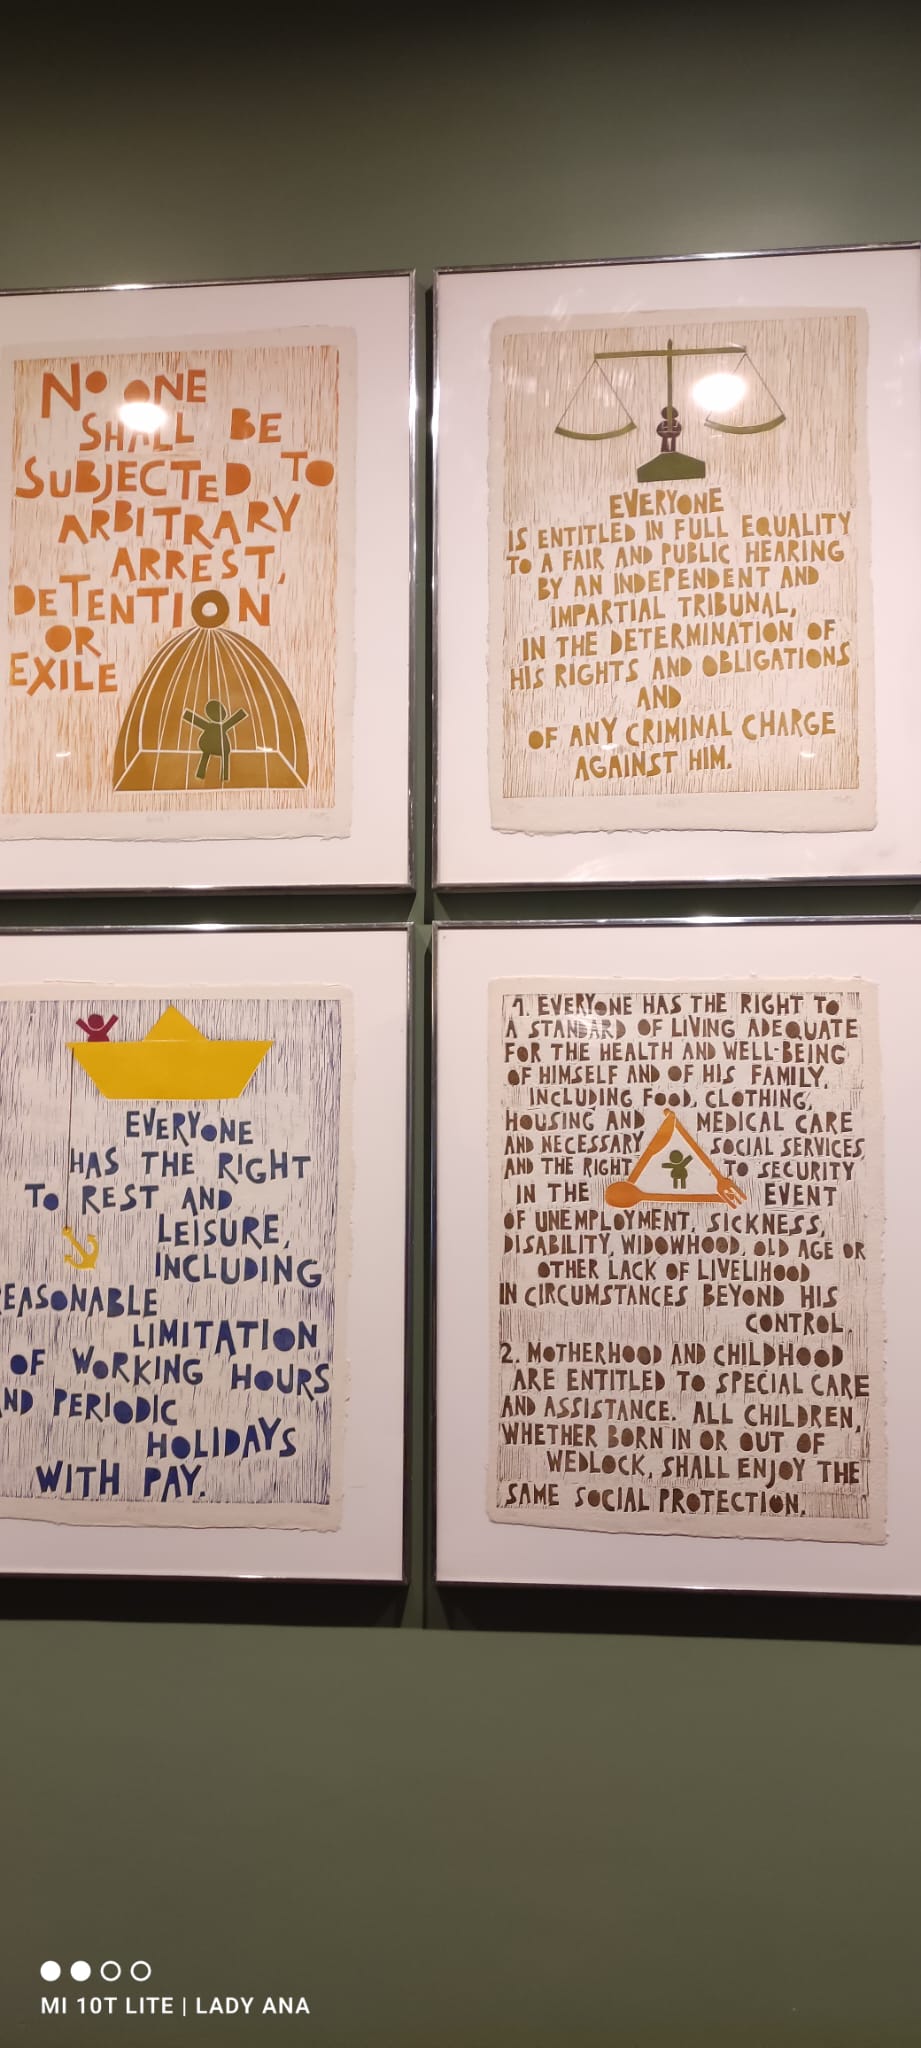 NO ONE
SHALL BE
SUBJECTED TO
ARBITRARY
ARREST,
DETENTION
OR
EXILE
EVERYONE
IS ENTITLED IN FULL EQUALITY
TO A FAIR AND PUBLIC HEARING
BY AN INDEPENDENT AND
IMPARTIAL TRIBUNAL,
IN THE DETERMINATION OF
HIS RIGHTS AND OBLIGATIONS
AND
OF ANY CRIMINAL CHARGE
AGAINST HIM.
EVERYONE
HAS THE RIGHT
TO REST AND
LEISURE,
INCLUDING
EASONABLE
LIMITATION
OF WORKING HOURS
ND PERIODIC
HOLIDAYS
WITH PAY.
1. EVERYONE HAS THE RIGHT TO
A STANDARD OF LIVING ADEQUATE
FOR THE HEALTH AND WELL-BEING
OF HIMSELF AND OF HIS FAMILY,
INCLUDING FOOD, CLOTHING,
HOUSING AND MEDICAL CARE
AND NECESSARY SOCIAL SERVICES,
AND THE RIGHT TO SECURITY
IN THE EVENT
OF UNEMPLOYMENT, SICKNESS,
DISABILITY, WIDOWHOOD, OLD AGE OR
OTHER LACK OF LIVELIHOOD
IN CIRCUMSTANCES BEYOND HIS
CONTROL.
2. MOTHERHOOD AND CHILDHOOD
ARE ENTITLED TO SPECIAL CARE
AND ASSISTANCE. ALL CHILDREN,
WHETHER BORN IN OR OUT OF
WEDLOCK, SHALL ENJOY THE
SAME SOCIAL PROTECTION.
MI 10T LITE | LADY ANA